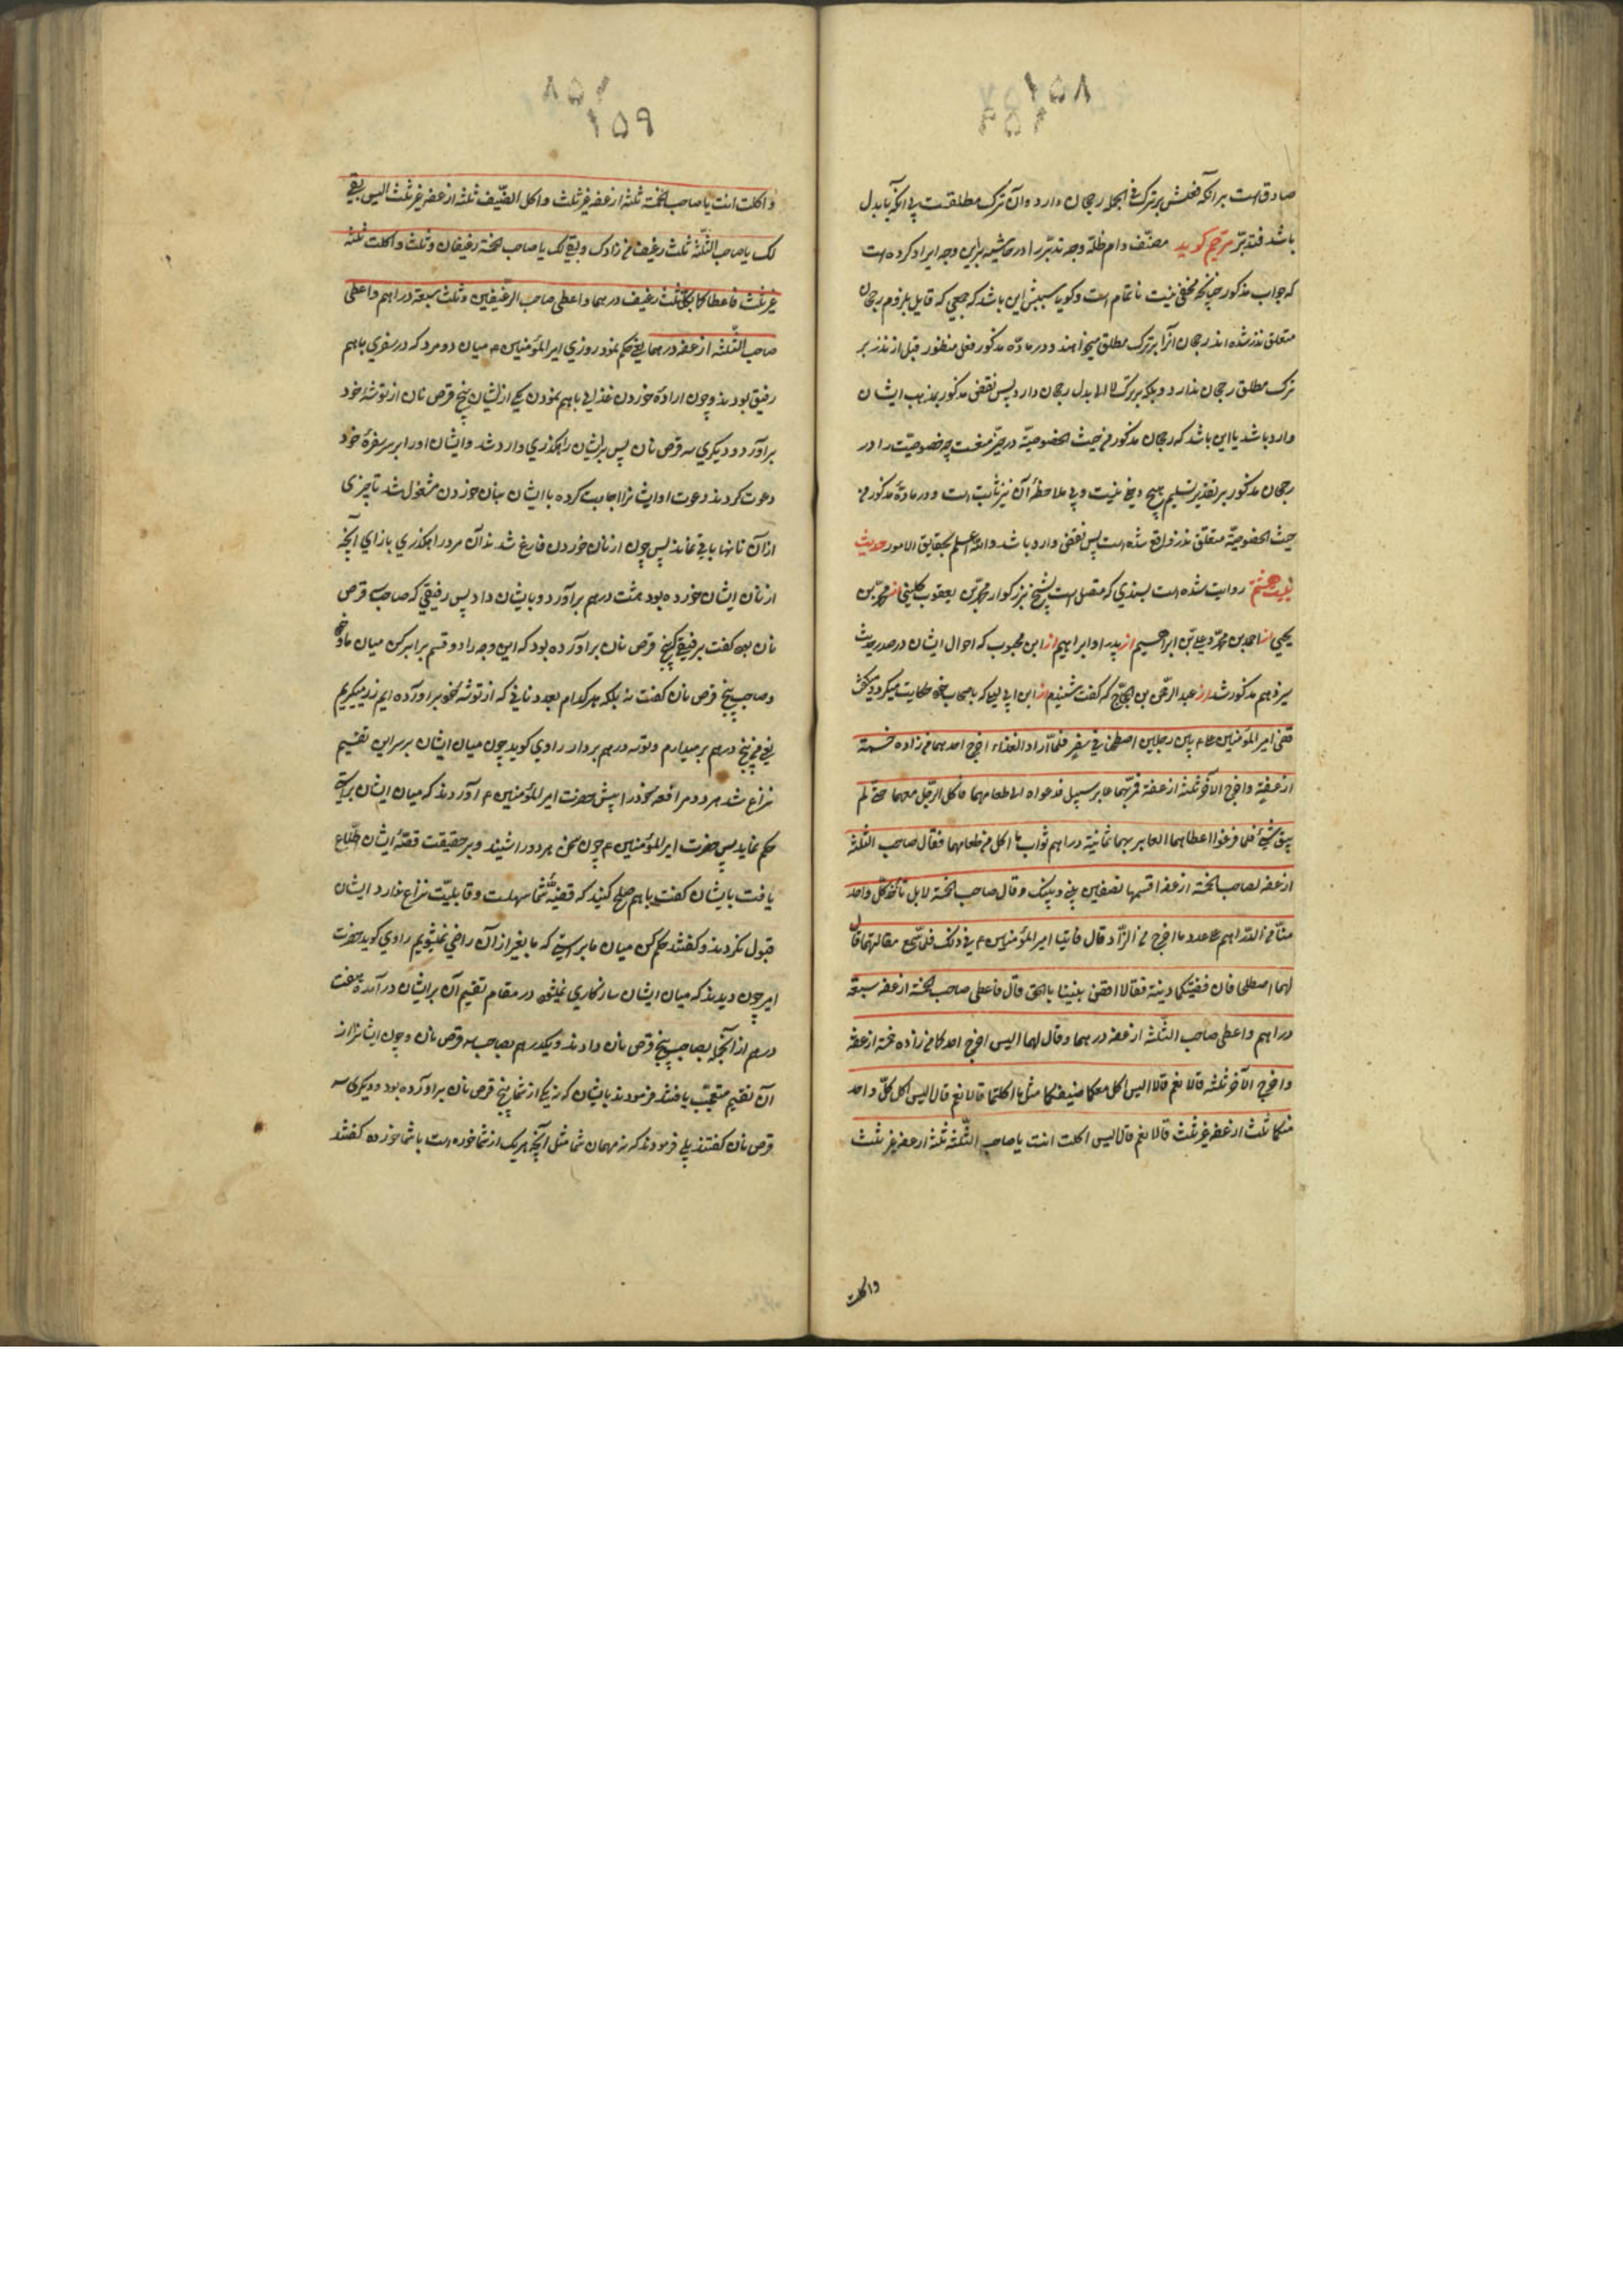 ۱۵۸
صادق است بر آنکه فعلش بر ترک فی الجمله رجحان دارد و آن ترک مطلقست پی آنکه با بدل
باشد فتدبّر مترجم کوید مصنّف دام ظلّه وجه تدبّر را در حاشیه براین وجه ایراد کرده است
که جواب مذکور چنانچه مخفی نیست ناتمام است و کویا سببش این باشد که جمعی که قایل بلزوم رجحان
متعلق نذر شده اند رجحان آنرا بر ترک مطلق میخواهند و در ماده مذکور فعل منظور قبل از نذر بر
ترک مطلق رجحان ندارد و بلکه بر ترک لا الی بدل رجحان دارد پس نقض مذکور بمذهب ایشان
وارد باشد یا این باشد که رجحان مذکور من حیث الخصوصیّة در حیّز منعست چه خصوصیّت را در
رجحان مذکور بر تقدیر تسلیم هیچ دخلی نیست و بی ملاحظهٔ آن نیز ثابت است و در مادهٔ مذکور من
حیث الخصوصیّة متعلق نذر واقع شده است پس نقض وارد باشد والله اعلم بحقایق الامور حدیث
بیست هشتم روایت شده است بسندی که متصل است بشیخ بزرکوار محمّد بن یعقوب کلینی از محمّد بن
یحیی از احمد بن محمّد و علی بن ابراهیم از پدر او ابراهیم از ابن محبوب که احوال ایشان در صدر حدیث
سیزدهم مذکور شد از عبد الرحمن بن الحجّاج که کفت شنیدم از ابن ابی لیلی که با اصحاب خود حکایت میکرد و میکفت
قضی امیر المؤمنین ع م بین رجلین اصطحبا فی سفر فلمّا اراد الغذاء اخرج احدهما من زاده خمسة
ارغفة و اخرج الآخر ثلثة ارغفة فمرّ بهما عابر سبیل فدعواه الی طعامهما فاکل الرجل معهما حتّی لم
یبق شیئ فلما فرغوا اعطاهما العابر بهما ثمانیة دراهم ثواب ما اکل من طعامهما فقال صاحب الثلثة
ارغفه لصاحب الخمسة ارغفه اقسمها نصفین بینی و بینک و قال صاحب الخمسة لا بل یأخذ کلّ واحد
منّا من الدّراهم علی عدد ما اخرج من الزّاد قال فاتیا امیر المؤمنین ع م فی ذلک فلمّا سمع مقالتهما قال
لهما اصطلحا فان قضیّتکما دنیة فقالا اقض بیننا بالحق قال فاعطی صاحب الخمسة ارغفه سبعة
دراهم و اعطی صاحب الثلثه ارغفه درهما و قال لهما الیس اخرج احدکما من زاده خمسة ارغفة
و اخرج الآخر ثلثه قالا نعم قال الیس اکل معکما ضیفکما مثل ما اکلتما قالا نعم قال الیس اکل کلّ واحد
منکما ثلث ارغفه غیر ثلث قالا نعم قال الیس اکلت انت یا صاحب الثلثة ثلثة ارغفه غیر ثلث
واکلت
۱۵۹
و اکلت انت یا صاحب الخمسة ثلثة ارغفه غیر ثلث و اکل الضیف ثلثه ارغفه غیر ثلث الیس بقی
لک یا صاحب الثلثة ثلث رغیف من زادک و بقی لک یا صاحب الخمسة رغیفان و ثلث و اکلت ثلثة
غیر ثلث فاعطاکما بکل ثلث رغیف درهما و اعطی صاحب الرغیفین و ثلث سبعة دراهم و اعطی
صاحب الثلثه ارغفه درهما یعنی حکم نمود روزی امیر المؤمنین ع م میان دو مرد که در سفری باهم
رفیق بودند و چون ارادهٔ خوردن غذایی باهم نمودن یکی از ایشان پنج قرص نان از توشهٔ خود
برآورد و دیکری سه قرص نان پس برایشان راهکذری وارد شد و ایشان او را بر سر سفرهٔ خود
دعوت کردند دعوت او ایشانرا اجابت کرده با ایشان بنان خوردن مشغول شد تا چیزی
از آن نانها باقی نماند پس چون از نان خوردن فارغ شدند آن مرد راهکذری بازای آنچه
از نان ایشان خورده بود هشت درهم برآورد و بایشان داد پس رفیقی که صاحب سه قرص
نان بود کفت برفیقی که پنج قرص نان برآورده بود که این وجه را دو قسم برابر کن میان ما و خود
و صاحب پنج قرص نان کفت نه بلکه هر کدام بعدد نانی که از توشه خود برآورده ایم زر میکیریم
یعنی من پنج درهم برمیدارم و تو سه درهم بردار راوی کوید چون میان ایشان بر سر این تقسیم
نزاع شد هر دو مرافعه خود را پیش حضرت امیر المؤمنین ع م آوردند که میان ایشان براستی
حکم نماید پس حضرت امیر المؤمنین ع م چون سخن هر دو را شنید و بر حقیقت قضیّهٔ ایشان اطّلاع
یافت بایشان کفت باهم صلح کنید که قضیّهٔ شما سهلست و قابلیّت نزاع ندارد ایشان
قبول نکردند و کفتند حکم کن میان ما براستی که ما بغیر از آن راضی نمیشویم راوی کوید حضرت
امیر چون دیدند که میان ایشان سازکاری نمیشود در مقام تقسیم آن برایشان درآمده هفت
درهم از آنجمله بصاحب پنج قرص نان دادند و یکدرهم بصاحب سه قرص نان و چون ایشانرا از
آن تقسیم متعجّب یافتند فرمودند بایشان که نه یکی از شما پنج قرص نان برآورده بود و دیکری سه
قرص نان کفتند بلی فرمودند که نه مهمان شما مثل آنچه هر یک از شما خورده است با شما خورده کفتند